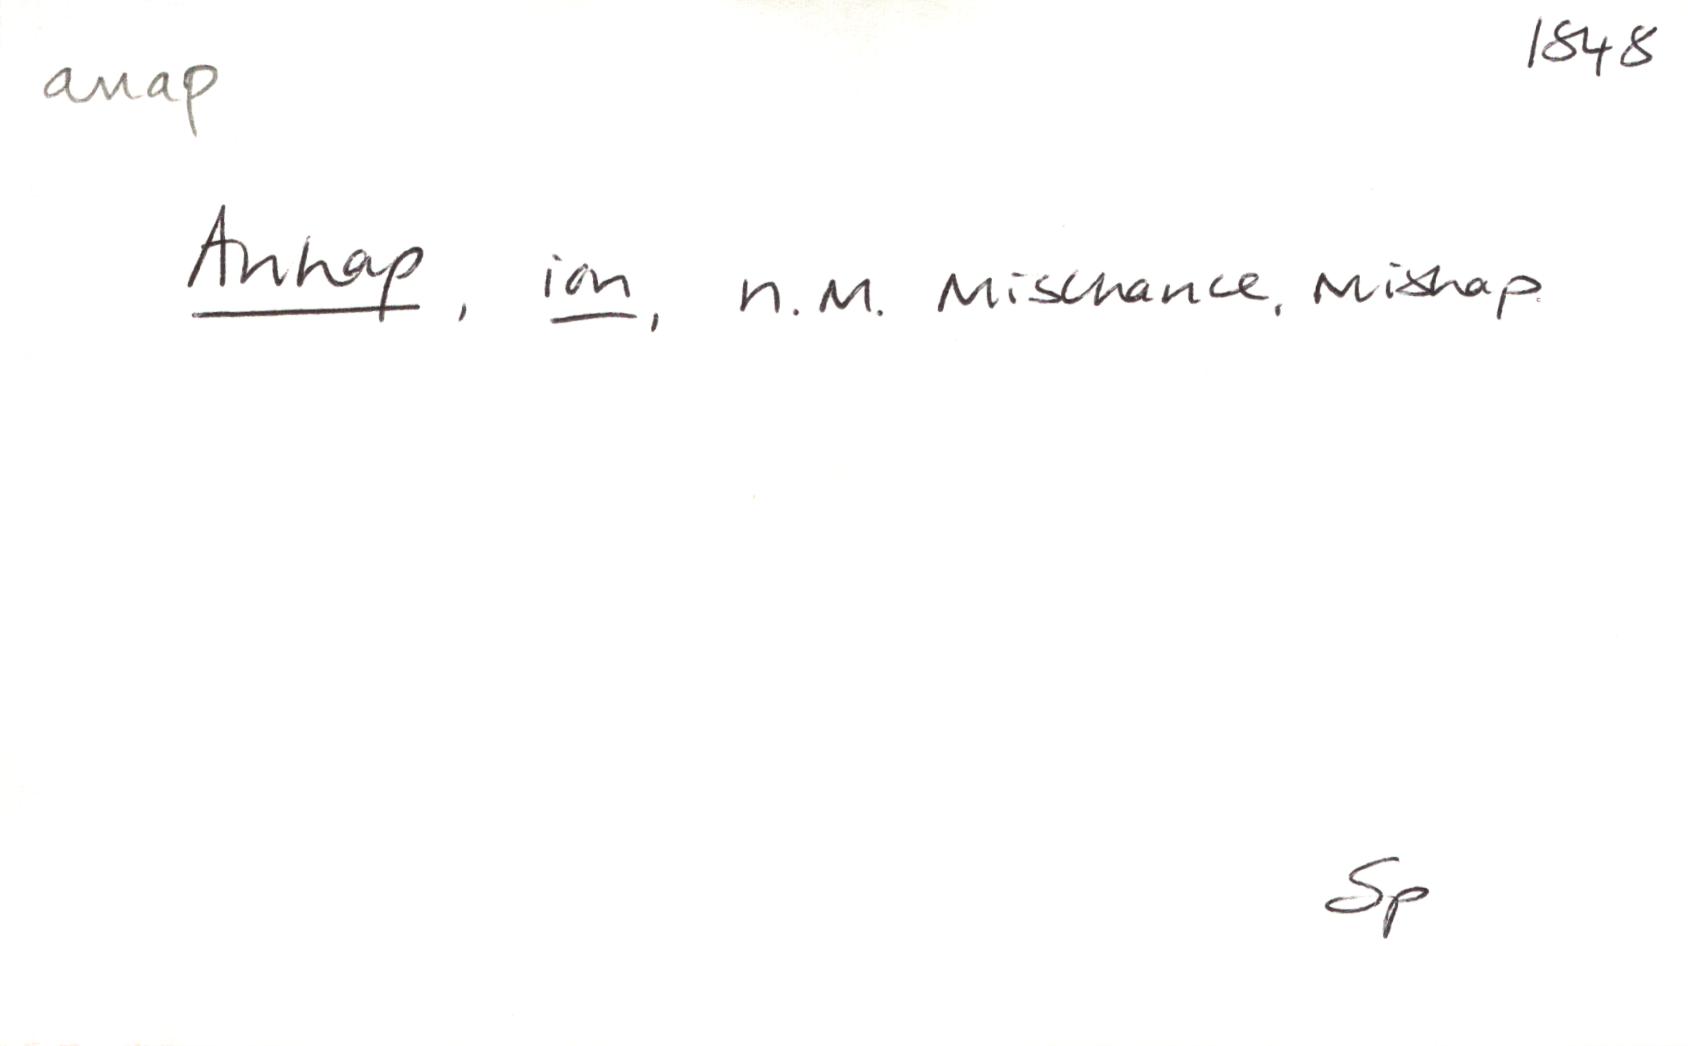 anap
1848
Anhap, ion, n.m. Mischance, Mishap.
Sp